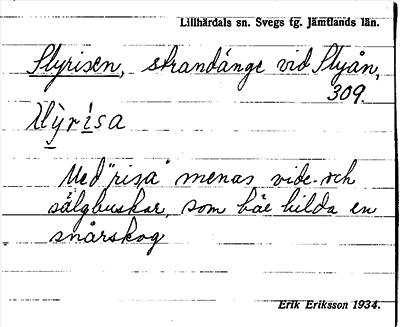 Lillhärdals sn. Svegs tg. Jämtlands län.
Flyrisen, strandänge vid Flyån,
309.
Med "risa" menas vide- och
sälgbuskar, som här bilda en
snårskog
Erik Eriksson 1934.